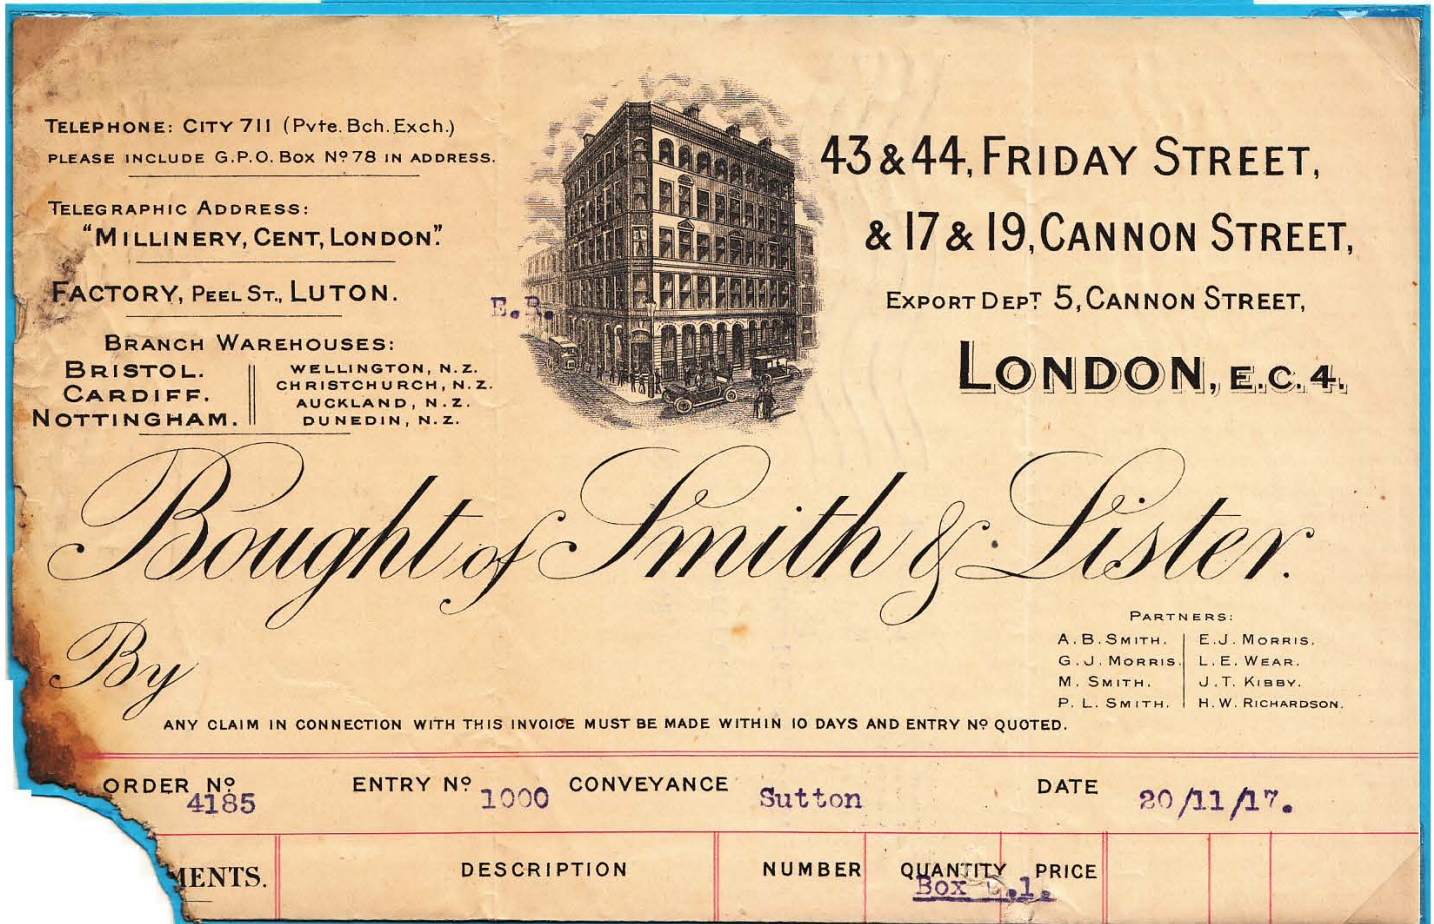 TELEPHONE: CITY 711 (Pvte. Bch. Exch.)
PLEASE INCLUDE G.P.O. BOX Nº 78 IN ADDRESS.
TELEGRAPHIC ADDRESS:
"MILLINERY, CENT, LONDON."
FACTORY, PEEL ST., LUTON.
BRANCH WAREHOUSES:
BRISTOL.
CARDIFF.
NOTTINGHAM.
WELLINGTON, N.Z.
CHRISTCHURCH, N.Z.
AUCKLAND, N.Z.
DUNEDIN, N.Z.
E.R.
43 & 44, FRIDAY STREET,
& 17 & 19, CANNON STREET,
EXPORT DEPT 5, CANNON STREET,
LONDON, E.C.4.
Bought of Smith & Lister.
By
PARTNERS:
A.B. SMITH. E.J. MORRIS.
G.J. MORRIS. L.E. WEAR.
M. SMITH. J.T. KIBBY.
P.L. SMITH. H.W. RICHARDSON.
ANY CLAIM IN CONNECTION WITH THIS INVOICE MUST BE MADE WITHIN 10 DAYS AND ENTRY Nº QUOTED.
ORDER Nº 4185 ENTRY Nº 1000 CONVEYANCE Sutton DATE 20/11/17.
MENTS. DESCRIPTION NUMBER QUANTITY PRICE
Box